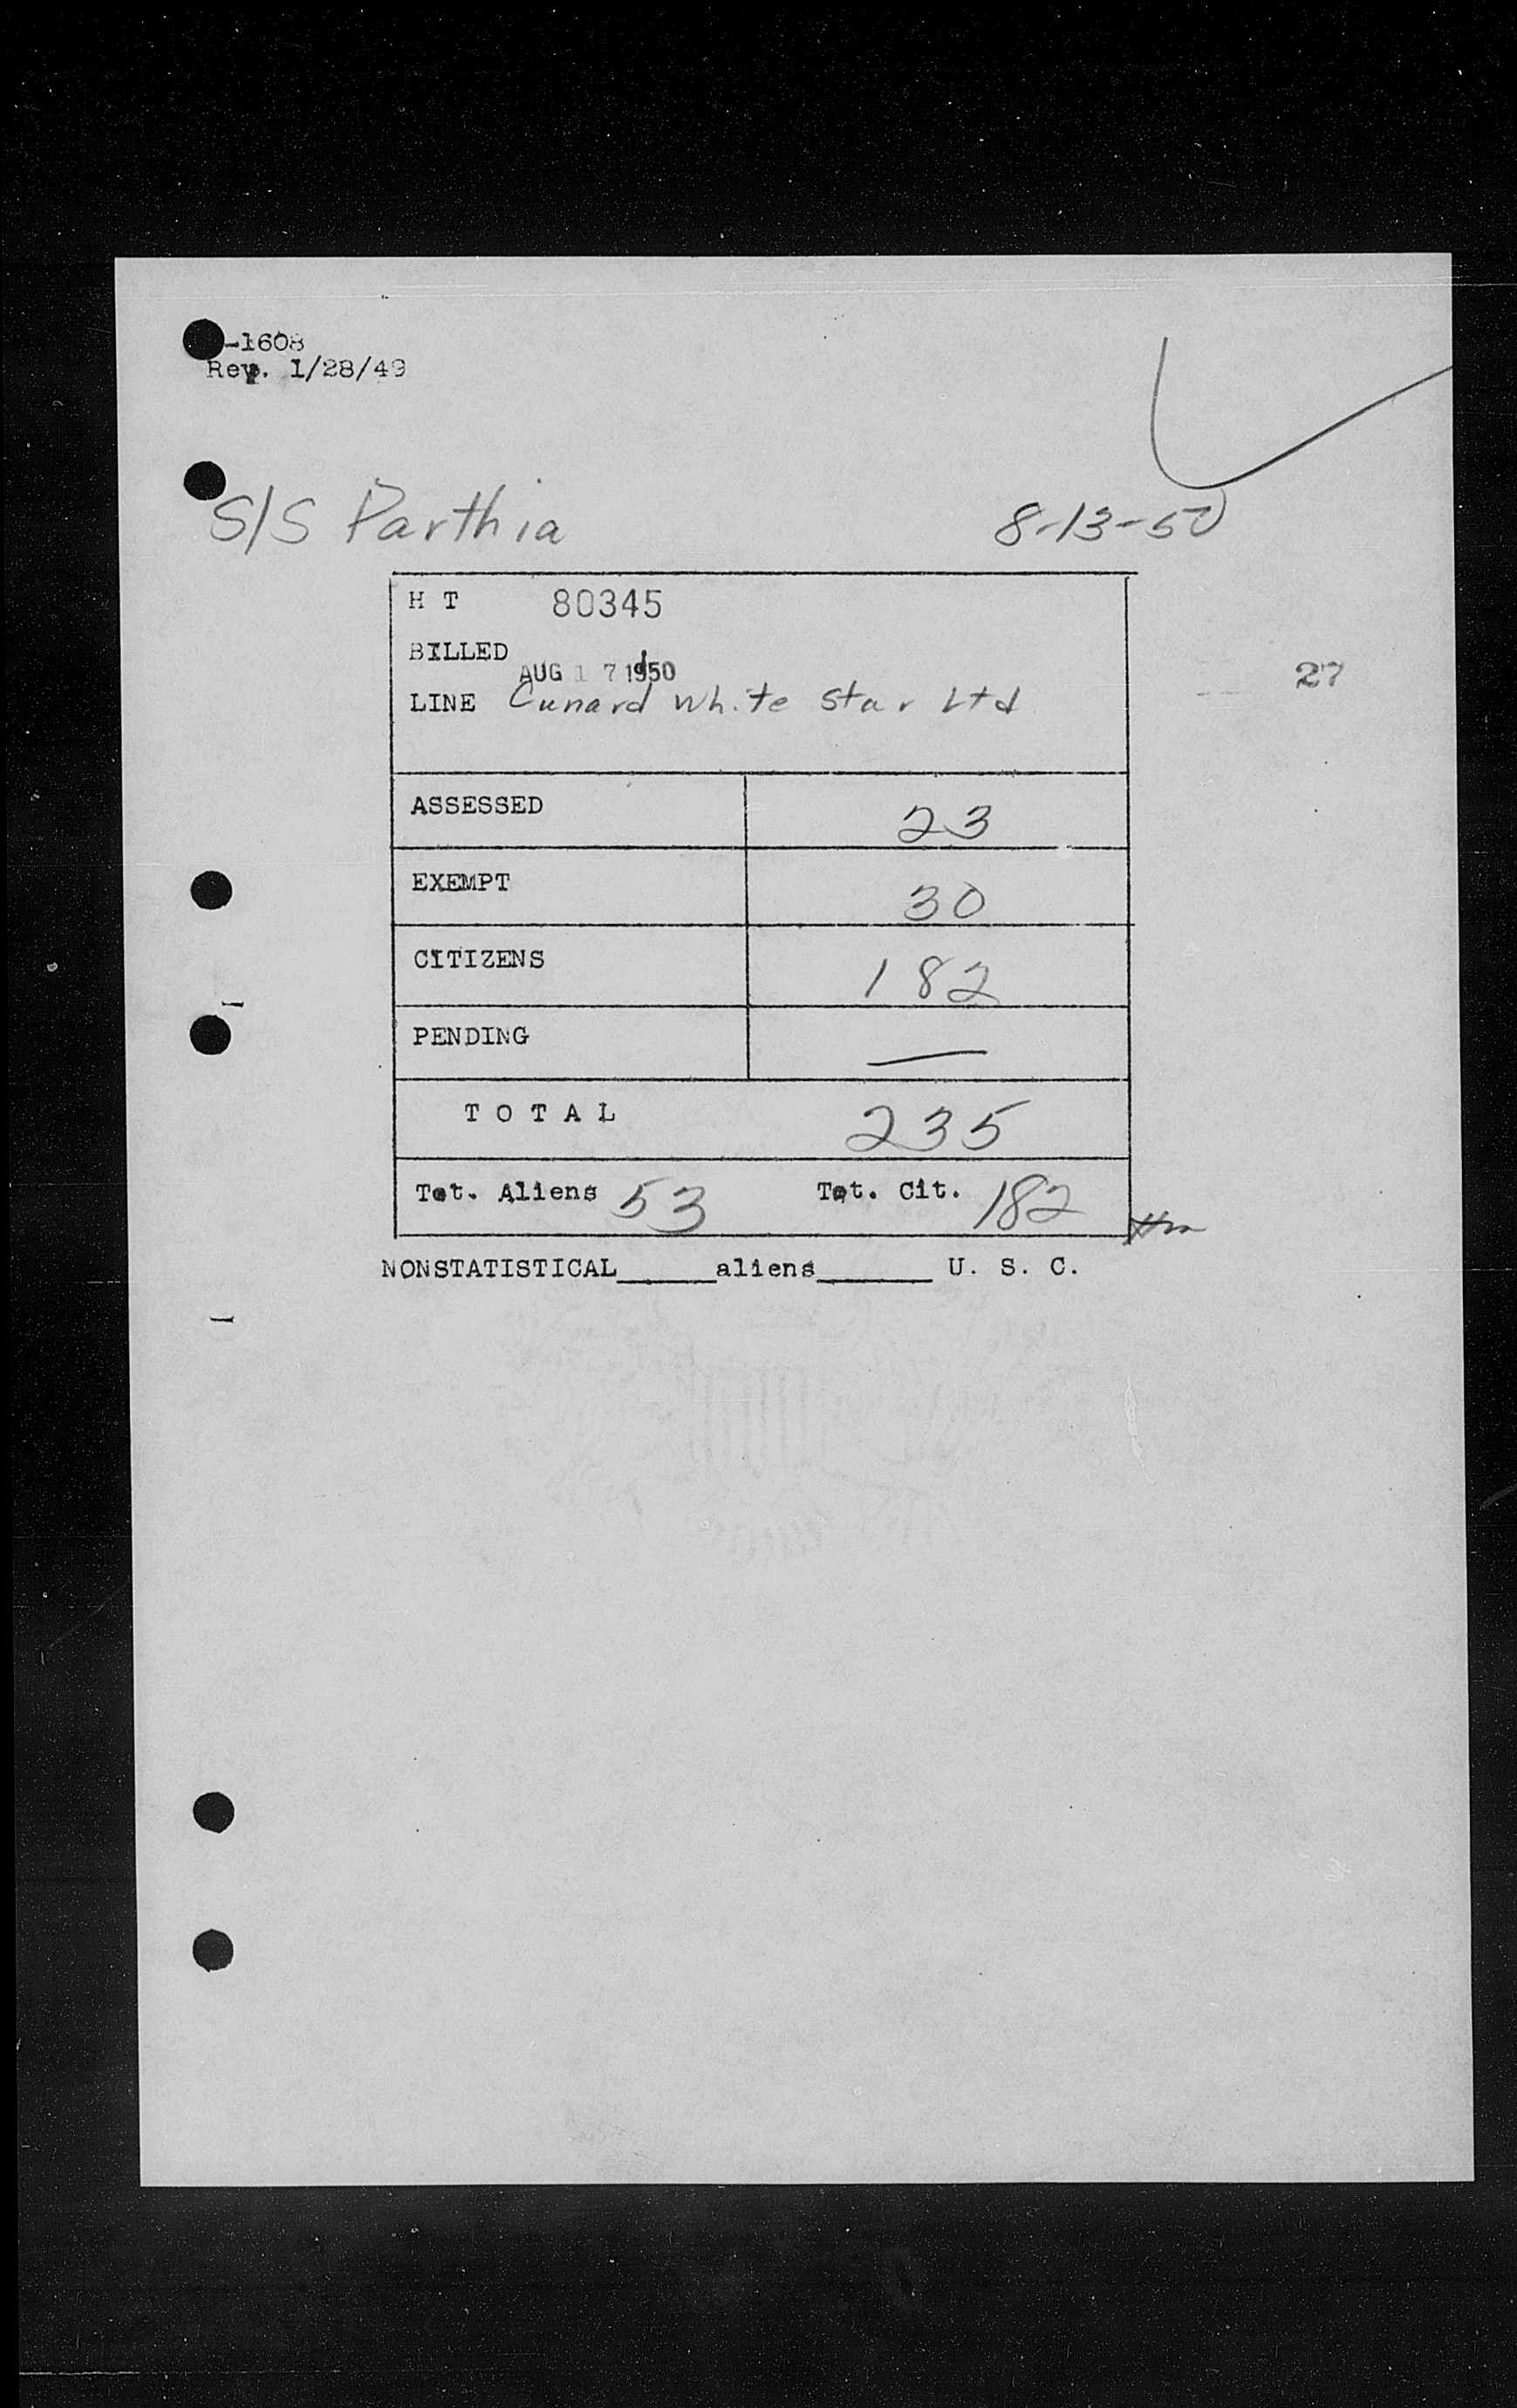 -1608
Rev. 1/28/49
S/S Parthia 8-13-50
H T 80345
BILLED AUG 17 1950
27
LINE Cunard White Star Ltd
ASSESSED 23
EXEMPT 30
CITIZENS 182
PENDING —
TOTAL 235
Tot. Aliens 53 Tot. Cit. 182
NONSTATISTICAL______aliens_______ U. S. C.